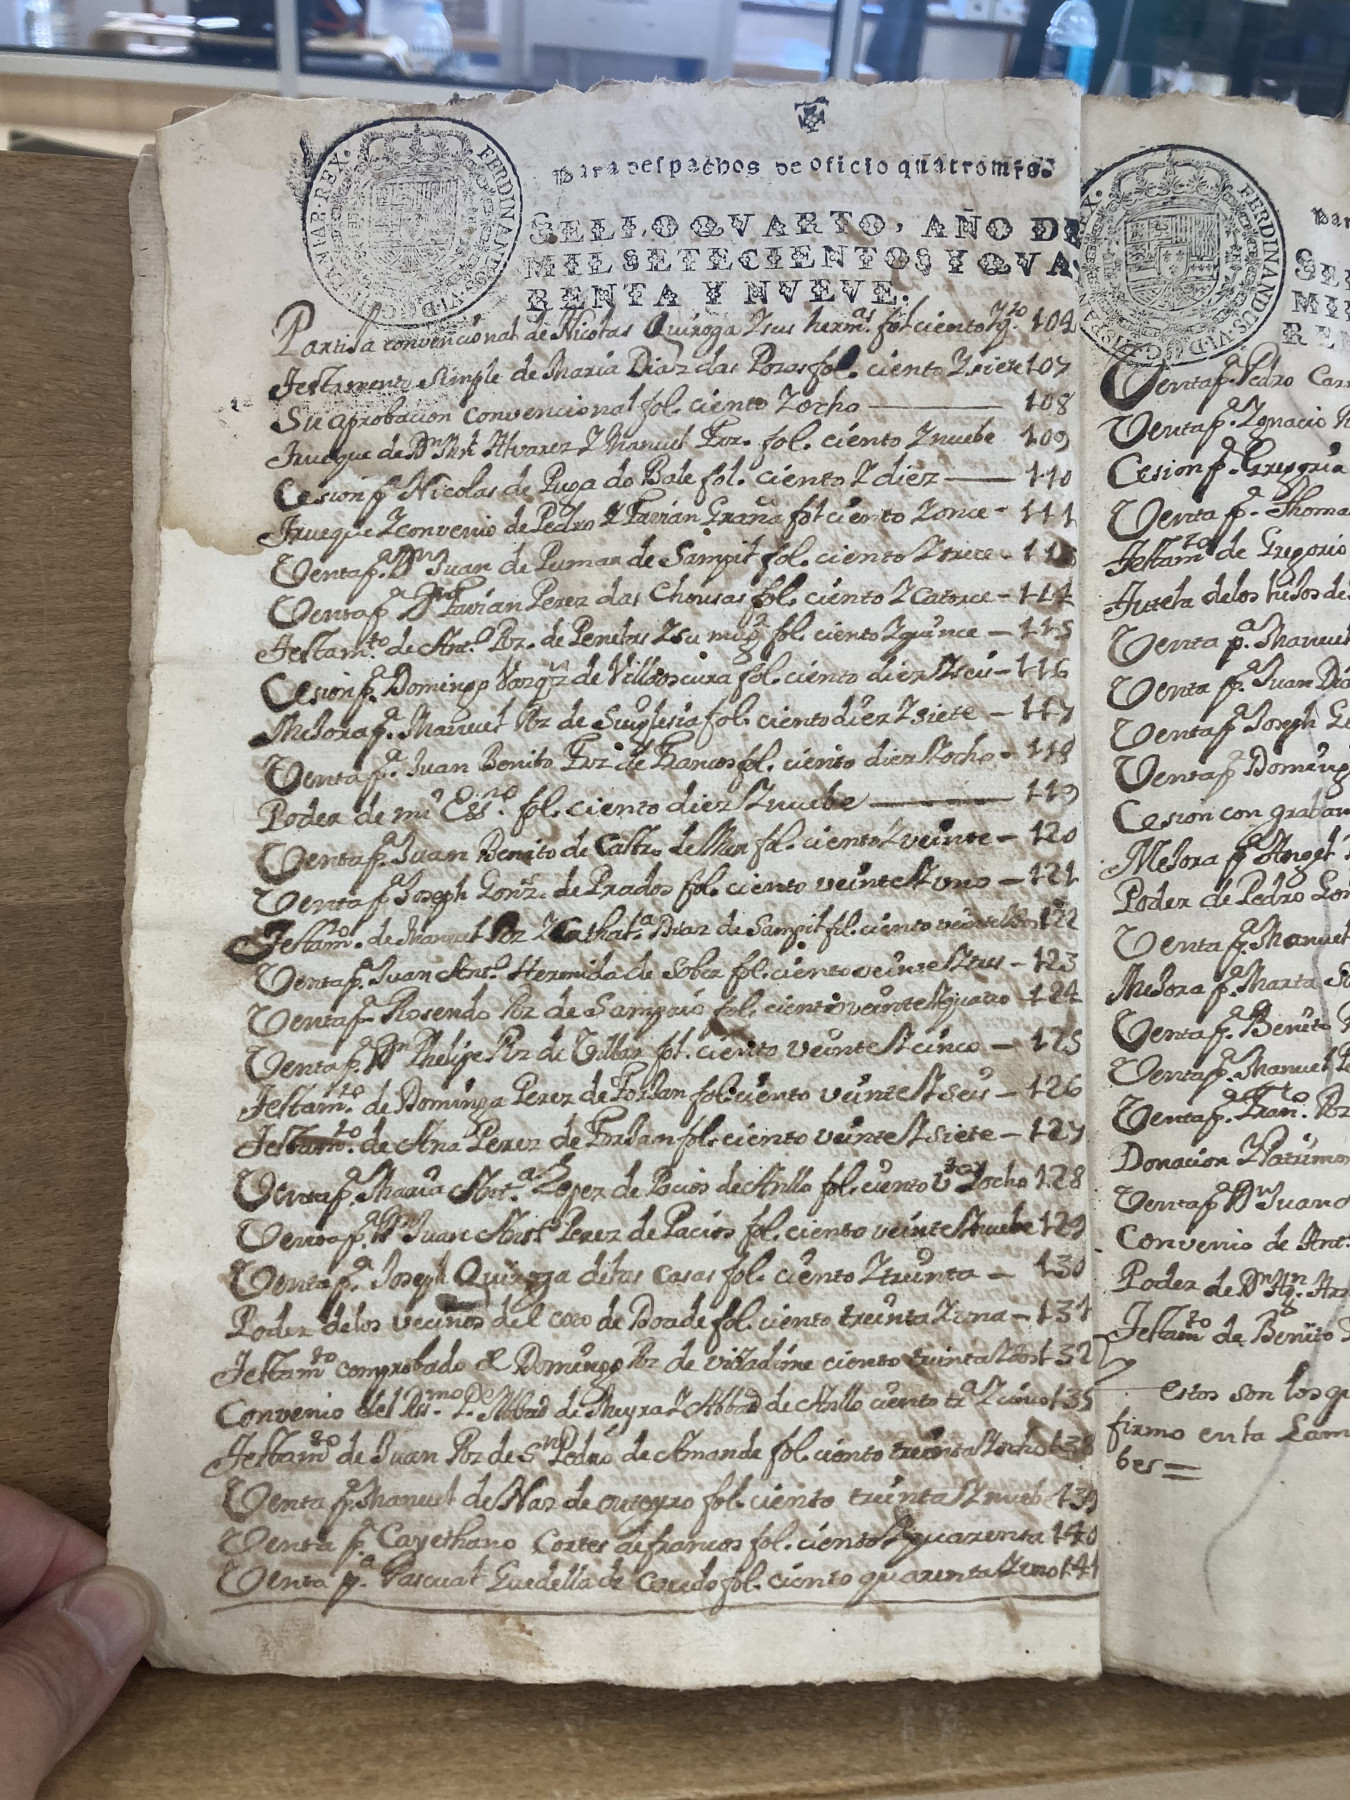 FERDINANDUS·VI·D·G·HISPANIAR·REX·
Para despachos de oficio quatro mrs.
SELLO QVARTO, AÑO DE
MIL SETECIENTOS Y QVA
RENTA Y NVEVE.
Partida convencional de Nicolas Quiroga Y sus herm.as fol ciento Yq.to 104
Testamento simple de Maria Diaz das Pozas fol. ciento Y siete 107
Su aprobacion convencional fol. ciento Y ocho 108
Trueque de Dn Alvarez Y Manuel Frz. fol. ciento Y nuebe 109
Cesion p.a Nicolas de Puga do Bale fol. ciento Y diez 110
Trueque Y convenio de Pedro Y Favian Graña fol ciento Y once - 111
Venta p.a Dn Juan de Pumar de Sampil fol. ciento Y trece - 113
Venta p.a Favian Perez das Chousas fol. ciento Y Catorce - 114
Testam.to de Ant.o Frz. de Penelas Y su mug.r fol. ciento Y quince - 115
Cesion p.a Domingo Vazq.z de Villaoscura fol. ciento diez Y seis - 116
Mejora p.a Manuel Frz de Suiglesia fol. ciento diez Y siete - 117
Venta p.a Juan Benito Frz de Francos fol. ciento diez Y ocho - 118
Poder de mi Ess.no fol. ciento diez Y nuebe 119
Venta p.a Juan Benito de Castro fol. ciento Y veinte - 120
Venta p.a Joseph Gonz. de Prados fol. ciento veinte Y uno - 121
Testam.to de Manuel Frz Y Cathat.a Diaz de Sampil fol. ciento veinte Y dos 122
Venta p.a Juan Ant.o Hermida de Sober fol. ciento veinte Y tres - 123
Venta p.a Rosendo Frz de Sampaio fol. ciento veinte Y quatro - 124
Venta p.a Dn Phelipe Frz de Villar fol. ciento veinte Y cinco - 125
Testam.to de Dominga Perez de Forjan fol. ciento veinte Y seis - 126
Testam.to de Ana Perez de Forjan fol. ciento veinte Y siete - 127
Venta p.a Maria Ant.a Lopez de Pacios de Anllo fol. ciento v.te Y ocho 128
Venta p.a Dn Juan Ant.o Perez de Pacios fol. ciento veinte Y nuebe 129
Venta p.a Joseph Quiroga de las Casas fol. ciento Y treinta - 130
Poder de los vecinos del coto de Doade fol. ciento treinta Y una - 131
Testam.to comprobado de Domingo Frz de ciento treinta Y dos 132
Convenio del Rn.mo P.e Abbad de Meyra Y Abbad de Anllo ciento tr.a Y cinco 135
Testam.to de Juan Frz de Sn Pedro de Amande fol. ciento treinta Y ocho 138
Venta p.a Manuel de Naz de outeyro fol. ciento treinta Y nuebe 139
Venta p.a Cayethano Cortes de francos fol. ciento Y quarenta 140
Venta p.a Pascual Guedella de Canedo fol. ciento quarenta Y uno 141
FERDINANDUS·VI·D·G·HISPANIAR·REX·
Par
SEL
MI
REN
Venta p.a Pedro Car
Venta p.a Ygnacio
Cesion p.a Gregoria
Venta p.a Thoma
Testam.to de Gregorio
Tutela de los hijos de
Venta p.a Manuel
Venta p.a Juan Dia
Venta p.a Joseph
Venta p.a Doming
Cesion con graba
Mejora p.a Angel
Poder de Pedro Lo
Venta p.a Manuel
Mejora p.a Marta
Venta p.a Benito
Venta p.a Manuel
Venta p.a Fran.co Frz
Donacion Y Patrimo
Venta p.a Dn Juan
Convenio de Ant.
Poder de Dn
Testam.to de Benito
Estos son los q
firmo en la Lam
bes=